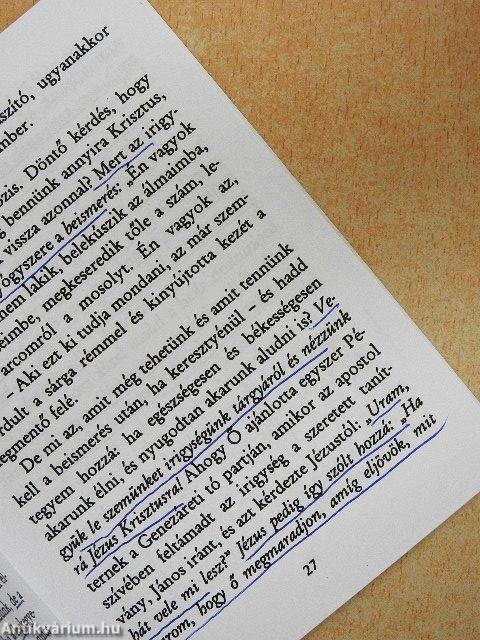 szító, ugyanakkor
mber.
zis. Döntő kérdés, hogy
g bennünk annyira Krisztus,
vissza azonnal! Mert az irigy-
yógyszere a beismerés: „Én vagyok
nem lakik, belekúszik az álmaimba,
eimbe, megkeseredik tőle a szám, le-
arcomról a mosolyt. Én vagyok az,
– Aki ezt ki tudja mondani, az már szem-
rdult a sárga rémmel és kinyújtotta kezét a
egmentő felé.
De mi az, amit még tehetünk és amit tennünk
kell a beismerés után, ha keresztyénül – és hadd
tegyem hozzá: ha egészségesen és békességesen
akarunk élni, és nyugodtan akarunk aludni is? Ve-
gyük le szemünket irigységünk tárgyáról és nézzünk
rá Jézus Krisztusra! Ahogy Ő ajánlotta egyszer Pé-
ternek a Genezáreti tó partján, amikor az apostol
szívében feltámadt az irigység a szeretett tanít-
vány, János iránt, és azt kérdezte Jézustól: „Uram,
hát vele mi lesz?" Jézus pedig így szólt hozzá: „Ha
arom, hogy ő megmaradjon, amíg eljövök, mit
27
Antikvárium.hu